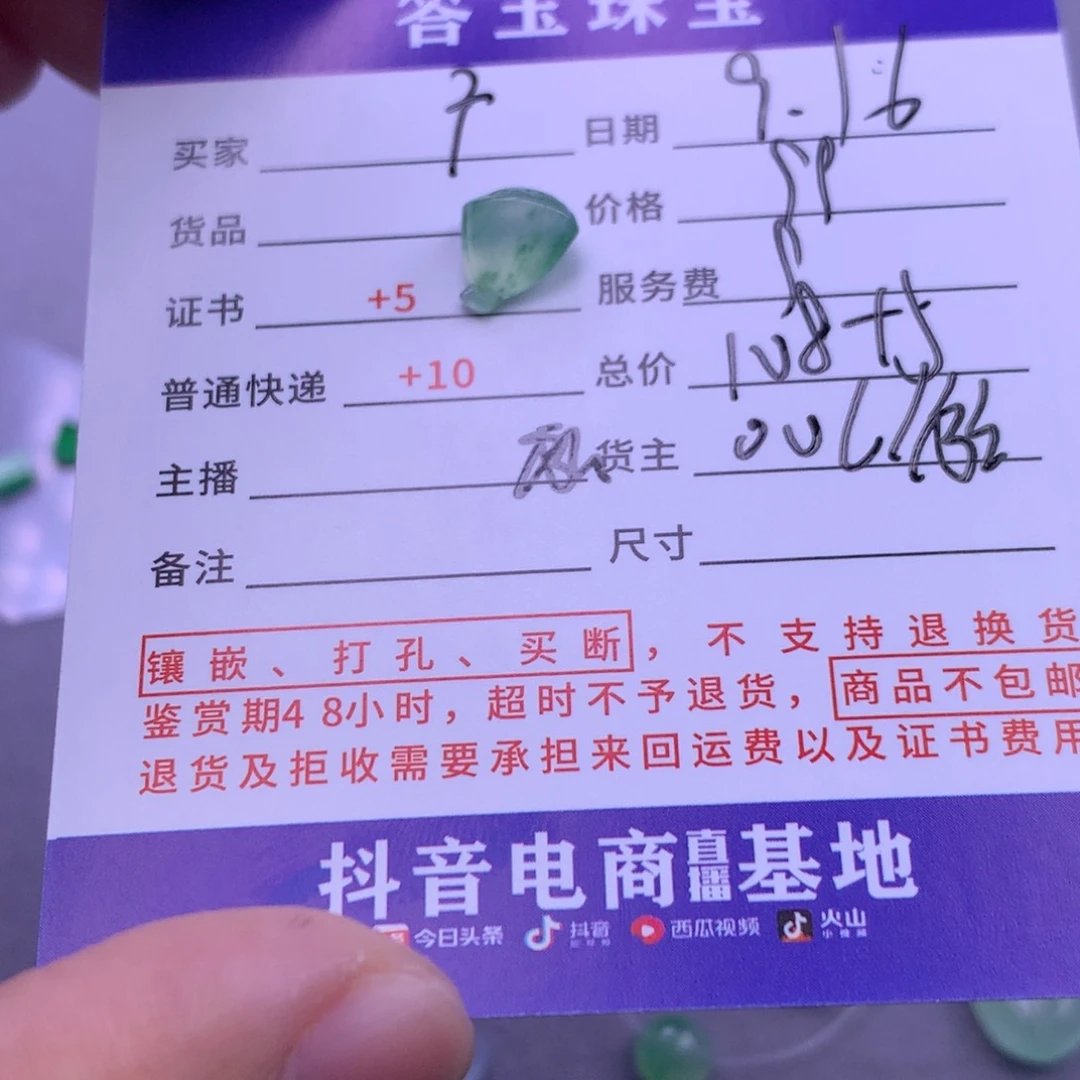 答玉珠宝
买家 7 日期 9.16
货品 价格 59
证书 +5 服务费
普通快递 +10 总价 108+5
主播 货主
备注 尺寸
镶嵌、打孔、买断，不支持退换货
鉴赏期48小时，超时不予退货，商品不包邮
退货及拒收需要承担来回运费以及证书费用
抖音电商直播基地
今日头条 抖音 西瓜视频 火山